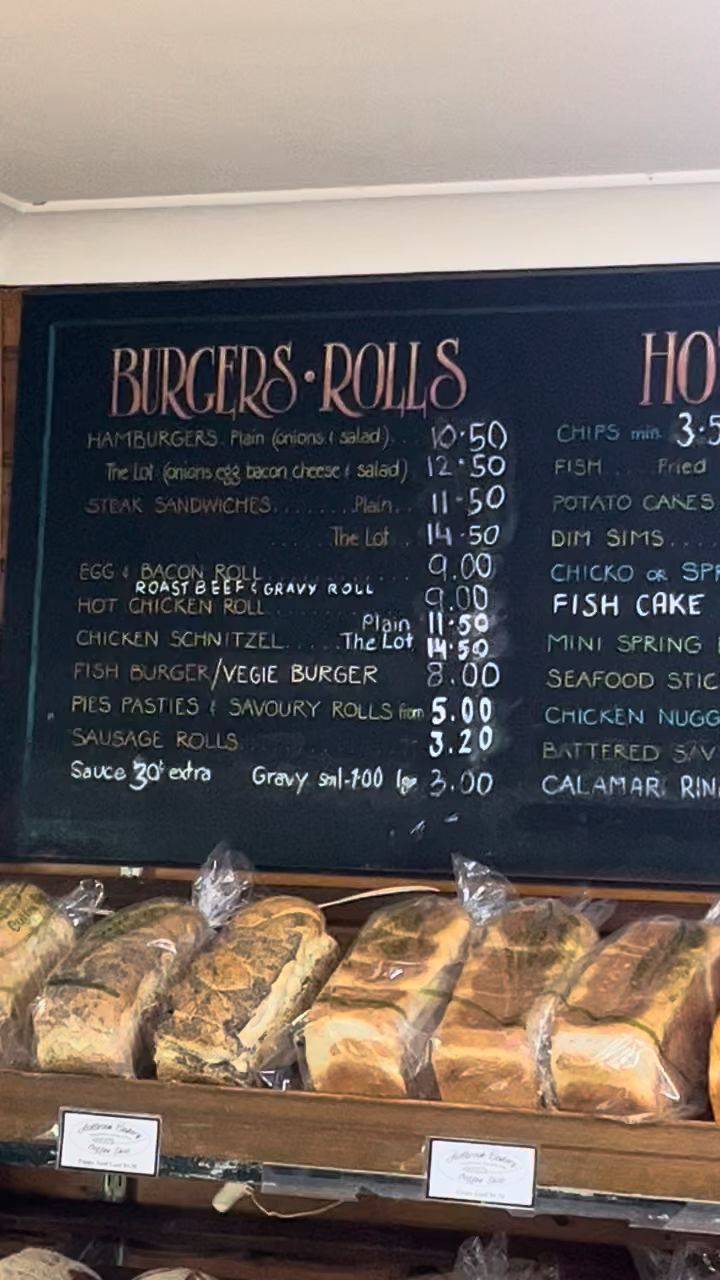 BURGERS · ROLLS
HAMBURGERS. Plain (onions & salad). . 10·50
The Lot (onions egg bacon cheese & salad) 12·50
STEAK SANDWICHES........Plain.. 11·50
The Lot .. 14·50
EGG & BACON ROLL 9.00
ROAST BEEF & GRAVY ROLL
HOT CHICKEN ROLL 9.00
Plain 11·50
CHICKEN SCHNITZEL..... The Lot 14·50
FISH BURGER/VEGIE BURGER 8.00
PIES PASTIES & SAVOURY ROLLS from 5.00
SAUSAGE ROLLS 3.20
Sauce 30¢ extra Gravy sml-1·00 lge 3.00
HO
CHIPS min. 3:5
FISH... Fried
POTATO CAKES
DIM SIMS....
CHICKO OR SP
FISH CAKE
MINI SPRING
SEAFOOD STIC
CHICKEN NUGG
BATTERED SAV
CALAMARI RIN